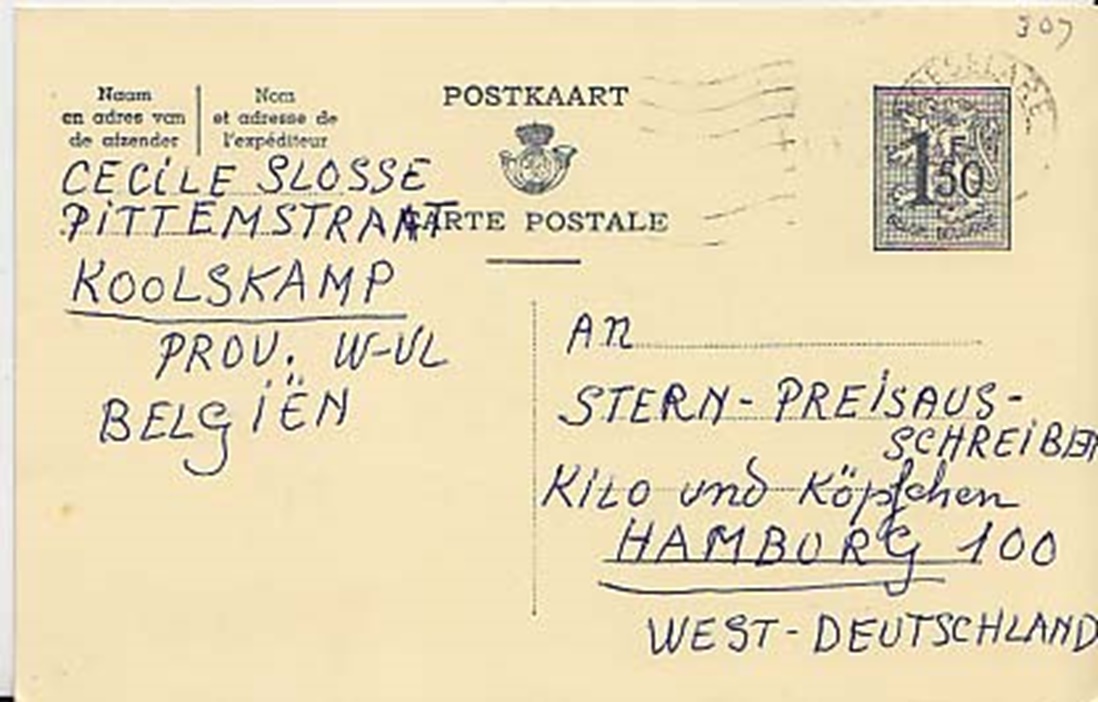 307
Naam
en adres van
de afzender
Nom
et adresse de
l'expéditeur
POSTKAART
CARTE POSTALE
1F50
CECILE SLOSSE
PITTEMSTRAAT
KOOLSKAMP
PROV. W-VL
BELGIËN
An
STERN-PREISAUS-
SCHREIBEN
KILO und Köpfchen
HAMBURG 100
WEST-DEUTSCHLAND